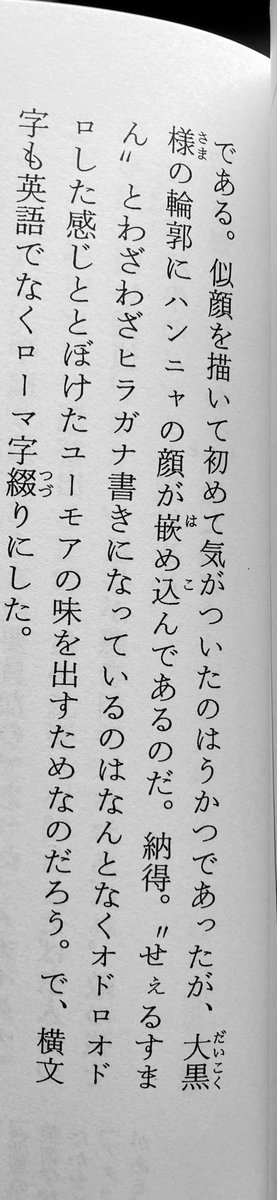 である。似顔を描いて初めて気がついたのはうかつであったが、大黒
様の輪郭にハンニャの顔が嵌め込んであるのだ。納得。〝せぇるすま
ん〟とわざわざヒラガナ書きになっているのはなんとなくオドロオド
ロした感じととぼけたユーモアの味を出すためなのだろう。で、横文
字も英語でなくローマ字綴りにした。